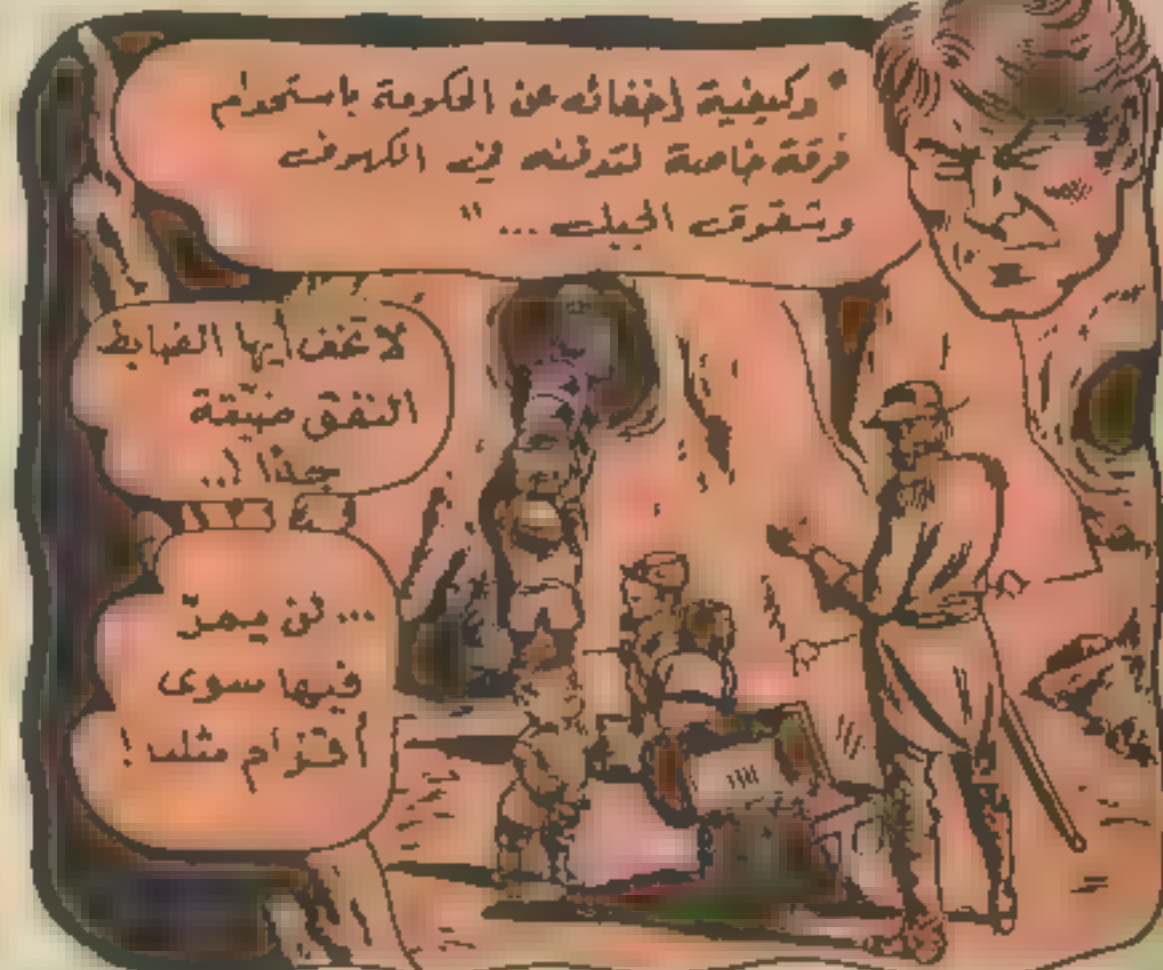 "وكيفية إخفائه عن الحكومة باستخدام
فرقة خاصة لتدفنه في الكهوف
وشقوق الجبل ... "
لا تخف أيها الضابط
النفق ضيّقة
جدّا !..
... لن يمرّ
فيها سوى
أقزام مثلنا !